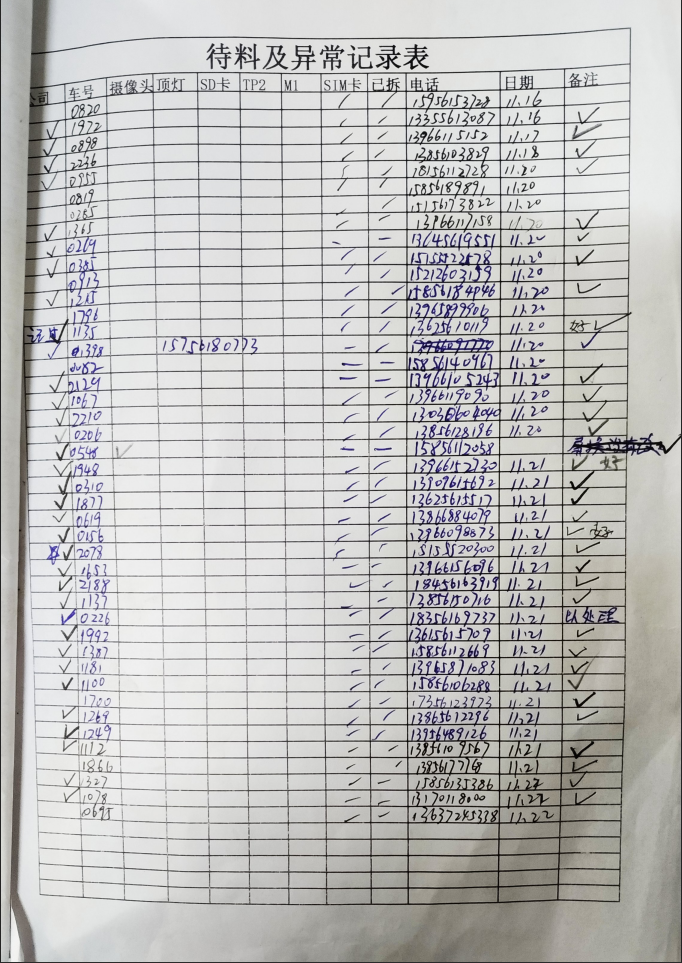 待料及异常记录表
公司 车号 摄像头 顶灯 SD卡 TP2 M1 SIM卡 已拆 电话 日期 备注
0820 / / 15956153728 11.16
✓ 1972 / / 13355613087 11.16 ✓
✓ 0898 / / 13966115152 11.17 ✓
✓ 2236 / / 13856103829 11.18 ✓
✓ 0955 / / 18156112728 11.20 ✓
0819 / / 15856189891 11.20
0285 / 15156173822 11.20
✓ 1365 / / 13966117158 11.20 ✓
✓ 0269 - - 13645619551 11.20 ✓
✓ 0385 / / 15155522578 11.20 ✓
0913 / / 15212603159 11.20
✓ 1215 / / 15856184046 11.20 ✓
1796 / / 13965899906 11.20
✓ 1135 / / 13625610119 11.20 好✓
✓ 01398 15756180773 - / 11.20 ✓
0082 — — 15856140967 11.20
✓ 2129 — — 13966105243 11.20 ✓
✓ 1067 / / 13966119090 11.20 ✓
✓ 2210 / / 11.20 ✓
✓ 0206 / / 13856128196 11.20 ✓
✓ 0548 ✓ - - 15856112058 ✓
✓ 1948 / / 13966152730 11.21 ✓ 好
✓ 0310 / / 13909615692 11.21 ✓
✓ 1877 / / 13625615517 11.21 ✓
✓ 0619 - / 13866884079 11.21 ✓
✓ 0156 / / 13966098873 11.21 ✓ 好
2078 / / 15155520300 11.21 ✓
✓ 1653 - / 13966156096 11.21 ✓
✓ 2188 ✓ / 18456163919 11.21 ✓
✓ 1137 / / 13856150716 11.21 ✓
✓ 0226 / / 18356169737 11.21 以处理
✓ 1992 - / 13615615709 11.21 ✓
✓ 1387 / / 15856112669 11.21 ✓
✓ 1181 / / 13965871083 11.21 ✓
✓ 1100 / / 15856106288 11.21 ✓
1700 / / 17356123973 11.21 ✓
✓ 1269 / / 13865612296 11.21 ✓
✓ 1249 / / 13956489126 11.21
✓ 1112 - / 13856109567 11.21 ✓
1866 / / 11.21 ✓
✓ 1327 / / 15856135386 11.22 ✓
✓ 1078 - / 13170118000 11.22 ✓
0695 / / 13637245338 11.22